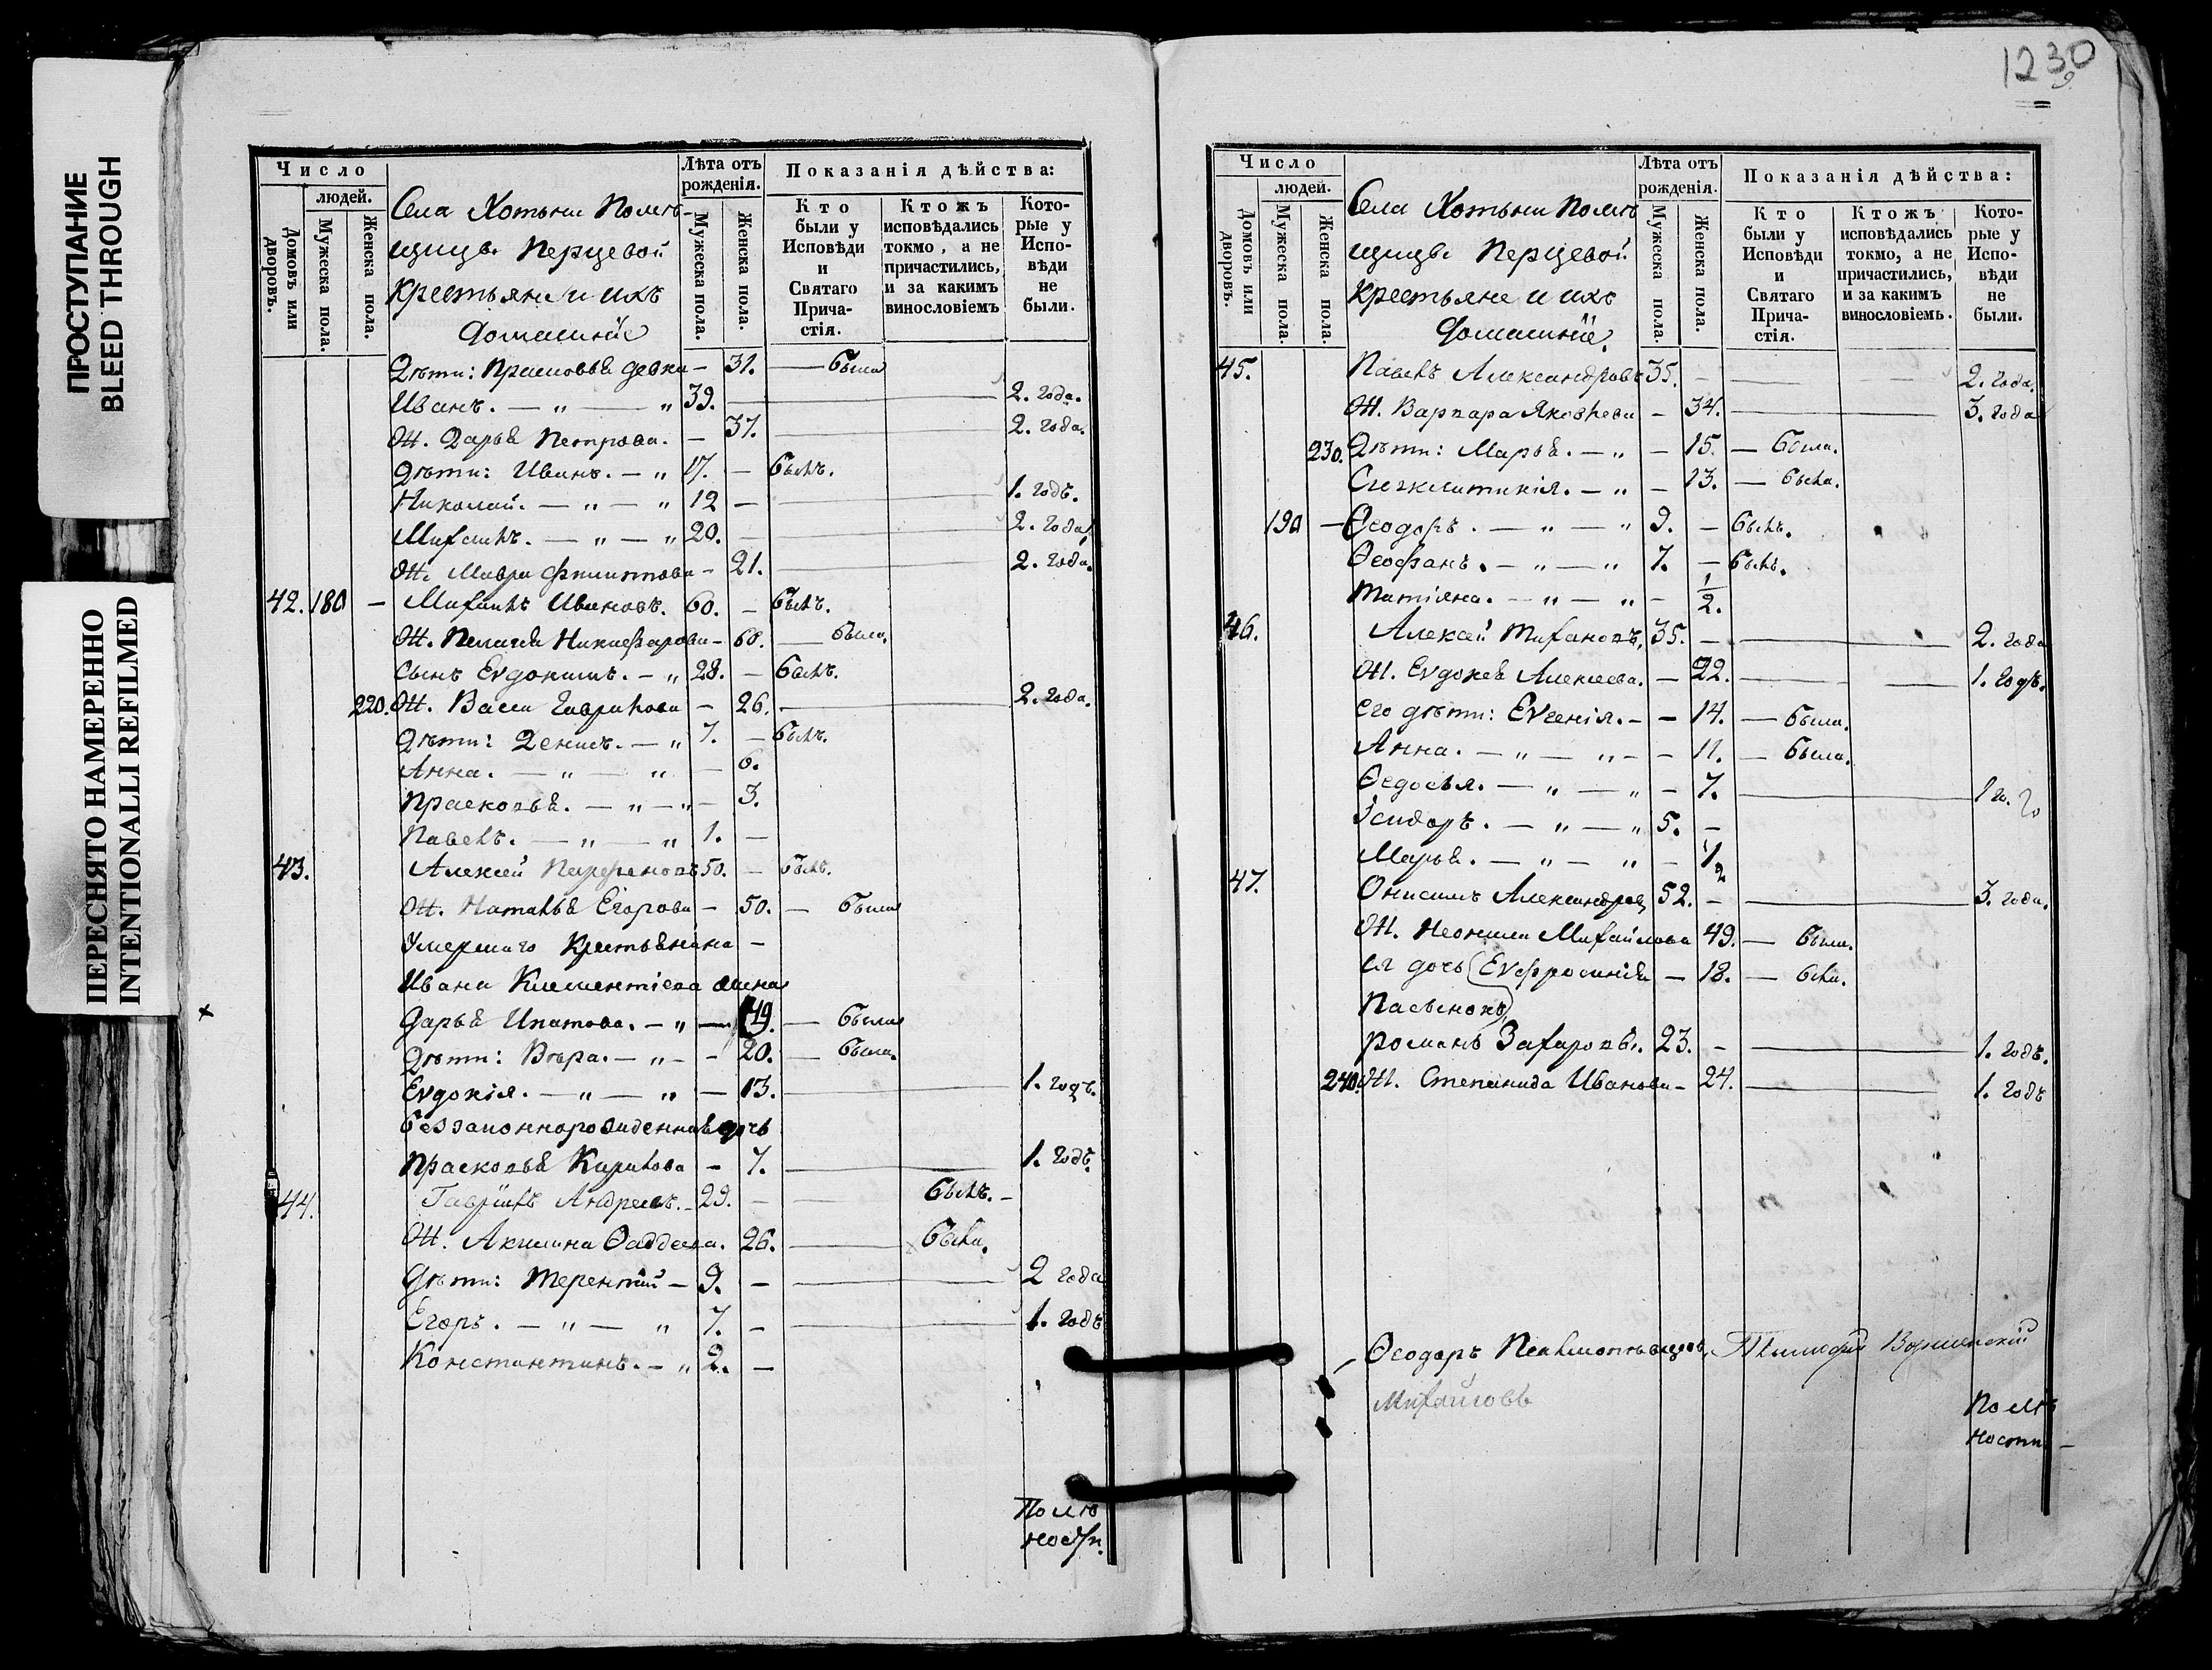 1230
9
ПРОСТУПАНИЕ
BLEED THROUGH
ПЕРЕСНЯТО НАМЕРЕННО
INTENTIONALLI REFILMED
Число
людей.
Домовъ или дворовъ.
Мужеска пола.
Женска пола.
Села Хотыни Помѣ-
щицы Перцевой
Крестьяне и ихъ
домашніе
Лѣта отъ рожденія.
Мужеска пола.
Женска пола.
Показанія дѣйства:
Кто были у Исповѣди и Святаго Прича-стія.
Ктожъ исповѣдались токмо, а не причастились, и за какимъ винословіемъ
Кото-рые у Испо-вѣди не были.
Дѣти: девка — 31. — была
Иванъ. — „ — „ 39. — 2. года.
Ж. Дарья Петрова. — 37. — 2. года.
Дѣти: Иванъ. — „ 17. — былъ.
Николай. — „ — „ 12 — 1. годъ.
Михаилъ. — „ — „ 20. — 2. года
Ж. Мавра Филиппова — 21. — 2. года.
42. 180 — Михаилъ Ивановъ. 60. — былъ.
Ж. Пелагія Никифорова — 60. — была.
Сынъ Еѵдокимъ. — „ 28. — былъ.
220. Ж. Васса Гаврилова — 26. — 2. года.
Дѣти: Денисъ. — „ 7. — былъ.
Анна. — „ — „ — 6.
Прасковья. — „ — „ — 3.
Павелъ. — „ — „ 1. —
43. Алексей Парфеновъ 50. — былъ.
Ж. Наталья Егорова — 50. — была
Умершаго Крестьянина —
Ивана Клементіева жена
Дарья Ипатова. — „ — 49. — была
Дѣти: Вѣра. — „ — — 20. — была.
Еѵдокія. — „ — „ — 13. — 1. годъ.
беззаконнорожденная дочь
Прасковья Кирилова — 7. — 1. годъ.
44. Гавріилъ Андреевъ. 29. — былъ. —
Ж. Акилина Ѳаддеева. 26. — была.
Дѣти: Терентій — 9. — 2 года
Егоръ. — „ — „ 7. — 1. годъ
Константинъ. — „ 2. —
Число
людей.
Домовъ или дворовъ.
Мужеска пола.
Женска пола.
Села Хотыни Помѣ
щицы Перцевой
Крестьяне и ихъ
домашніе.
Лѣта отъ рожденія.
Мужеска пола.
Женска пола.
Показанія дѣйства:
Кто были у Исповѣди и Святаго Прича-стія.
Ктожъ исповѣдались токмо, а не причастились, и за какимъ винословіемъ.
Кото-рые у Испо-вѣди не были.
45. Павелъ Александровъ 35. — 2. года.
Ж. Варвара Яковлева — 34. — 3. года
230. Дѣти: Марья. — „ — 15. — была.
— „ — 13. — была.
190 — Ѳеодоръ. — „ — „ 9. — былъ.
Ѳеофанъ. — „ — „ 7. — былъ.
Татіяна. — „ — „ — 1/2.
46. Алексей 35. — 2. года
Ж. Еѵдокея Алексеева. — 22. — 1. годъ.
Его дѣти: Еѵгенія. — — 14. — была.
Анна. — „ — „ — — 11. — была.
Ѳедосья. — „ — „ — 7. — 1 го.
Ісидоръ. — „ — „ 5. —
Марья. — „ — „ — 1/2
47. Онисимъ Александров 52. — 3. года.
Ж. Неонила Михайлова 49. — была.
ея дочь Еѵфросинія — 18. — была.
Пасынокъ
Романъ Захаровъ. 23. — 1. годъ.
240. Ж. Степанида Иванова — 24. — 1. годъ
Ѳеодоръ
Михайловъ